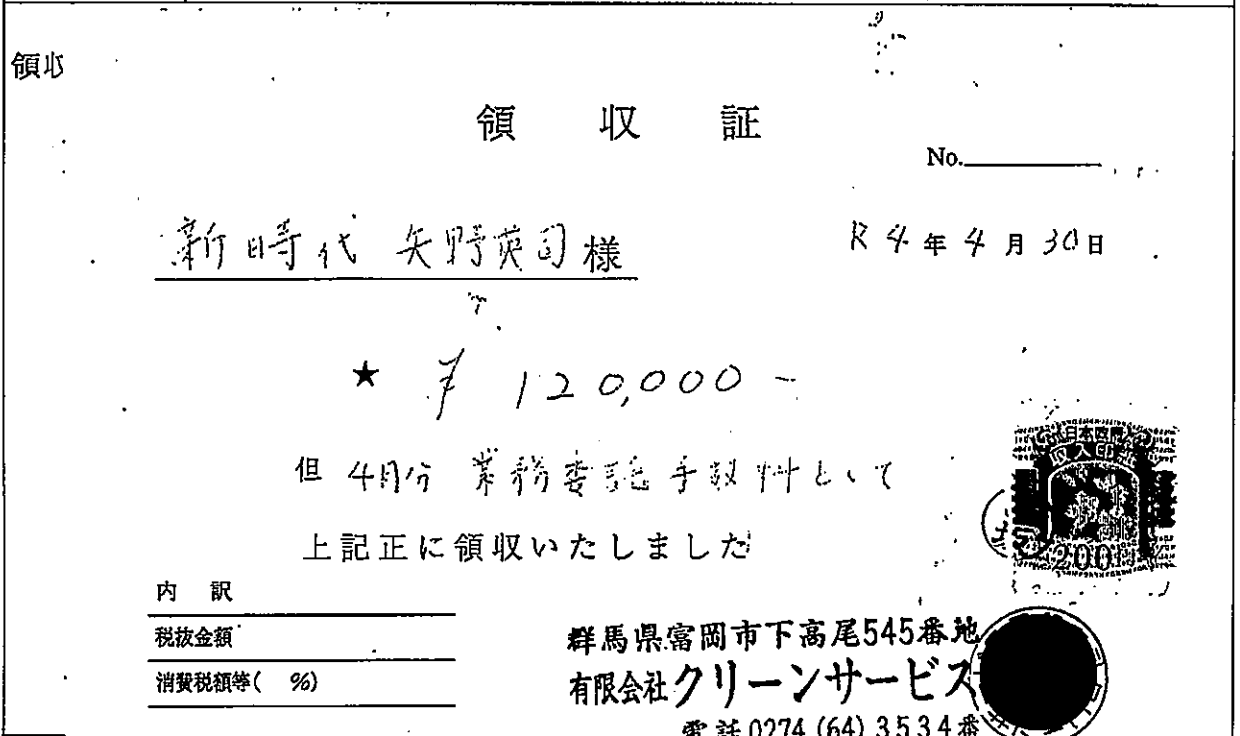 領収
領 収 証
No.
新時代 矢野英司様
R4年4月30日
★ ¥120,000-
但 4月分 業務委託手数料として
上記正に領収いたしました
日本政府
収入印紙
200
内 訳
税抜金額
消費税額等( %)
群馬県富岡市下高尾545番地
有限会社クリーンサービス
電話0274(64)3534番